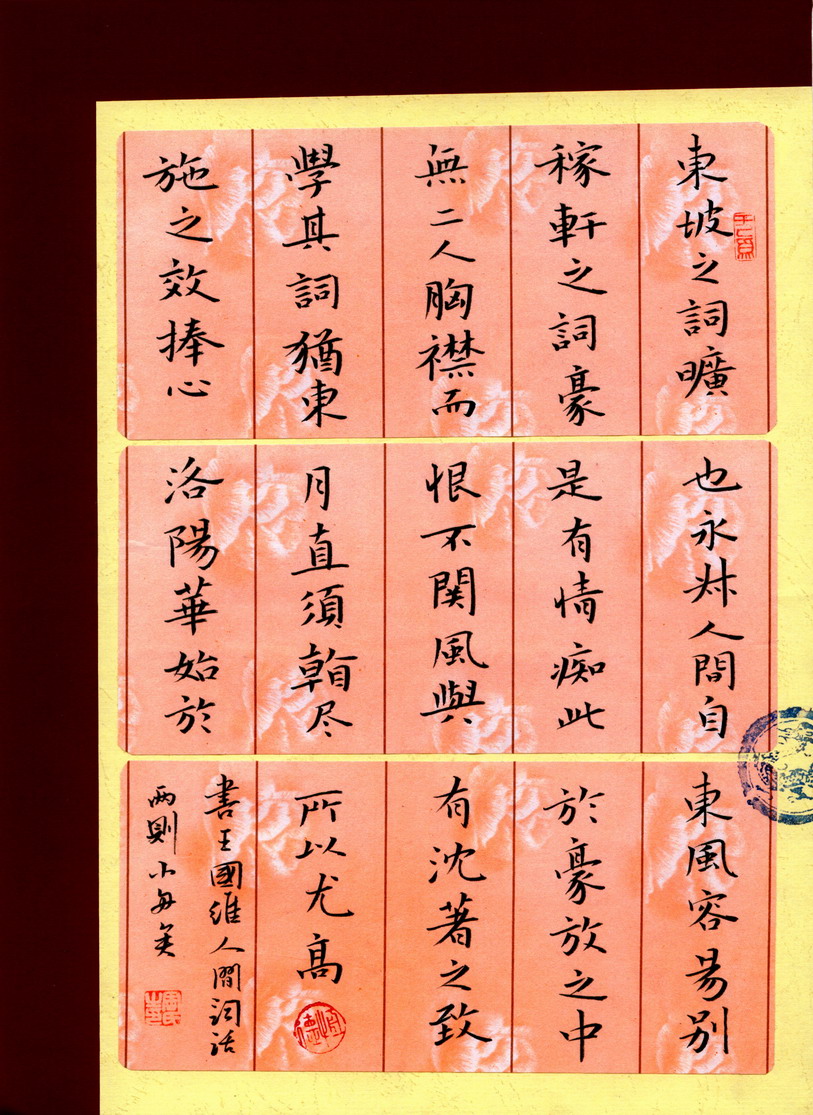 東坡之詞曠
稼軒之詞豪
無二人胸襟而
學其詞猶東
施之效捧心
也永叔人間自
是有情痴此
恨不関風與
月直須看尽
洛陽華始於
東風容易别
於豪放之中
有沈著之致
所以尤髙
書王國維人間詞話
兩則小